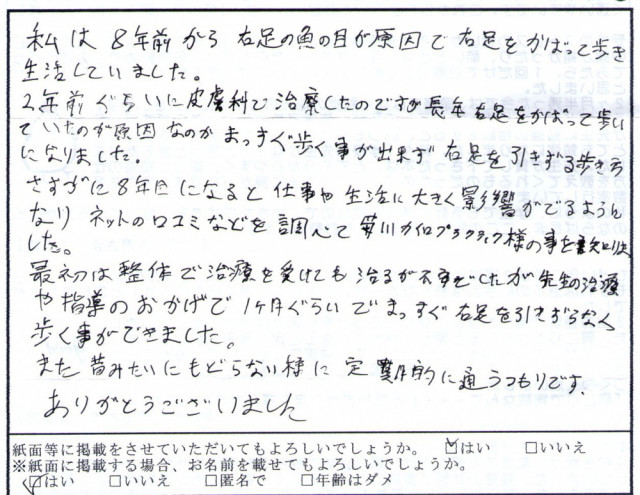 私は8年前から右足の魚の目が原因で右足をかばって歩き
生活していました。
2年前ぐらいに皮膚科で治療したのですが長年右足をかばって歩い
ていたのが原因なのかまっすぐ歩く事が出来ず右足を引きずる歩き方
になりました。
さすがに8年目になると仕事や生活に大きく影響がでるように
なりネットの口コミなどを調べて笹川カイロプラクティク様の事を
した。
最初は整体で治療を受けても治るか不安でしたが先生の治療
や指導のおかげで1ヶ月ぐらいでまっすぐ右足を引きずらなく
歩く事ができました。
また昔みたいにもどらない様に定期的に通うつもりです。
ありがとうございました
紙面等に掲載をさせていただいてもよろしいでしょうか。 ☑はい □いいえ
※紙面に掲載する場合、お名前を載せてもよろしいでしょうか。
☑はい □いいえ □匿名で □年齢はダメ